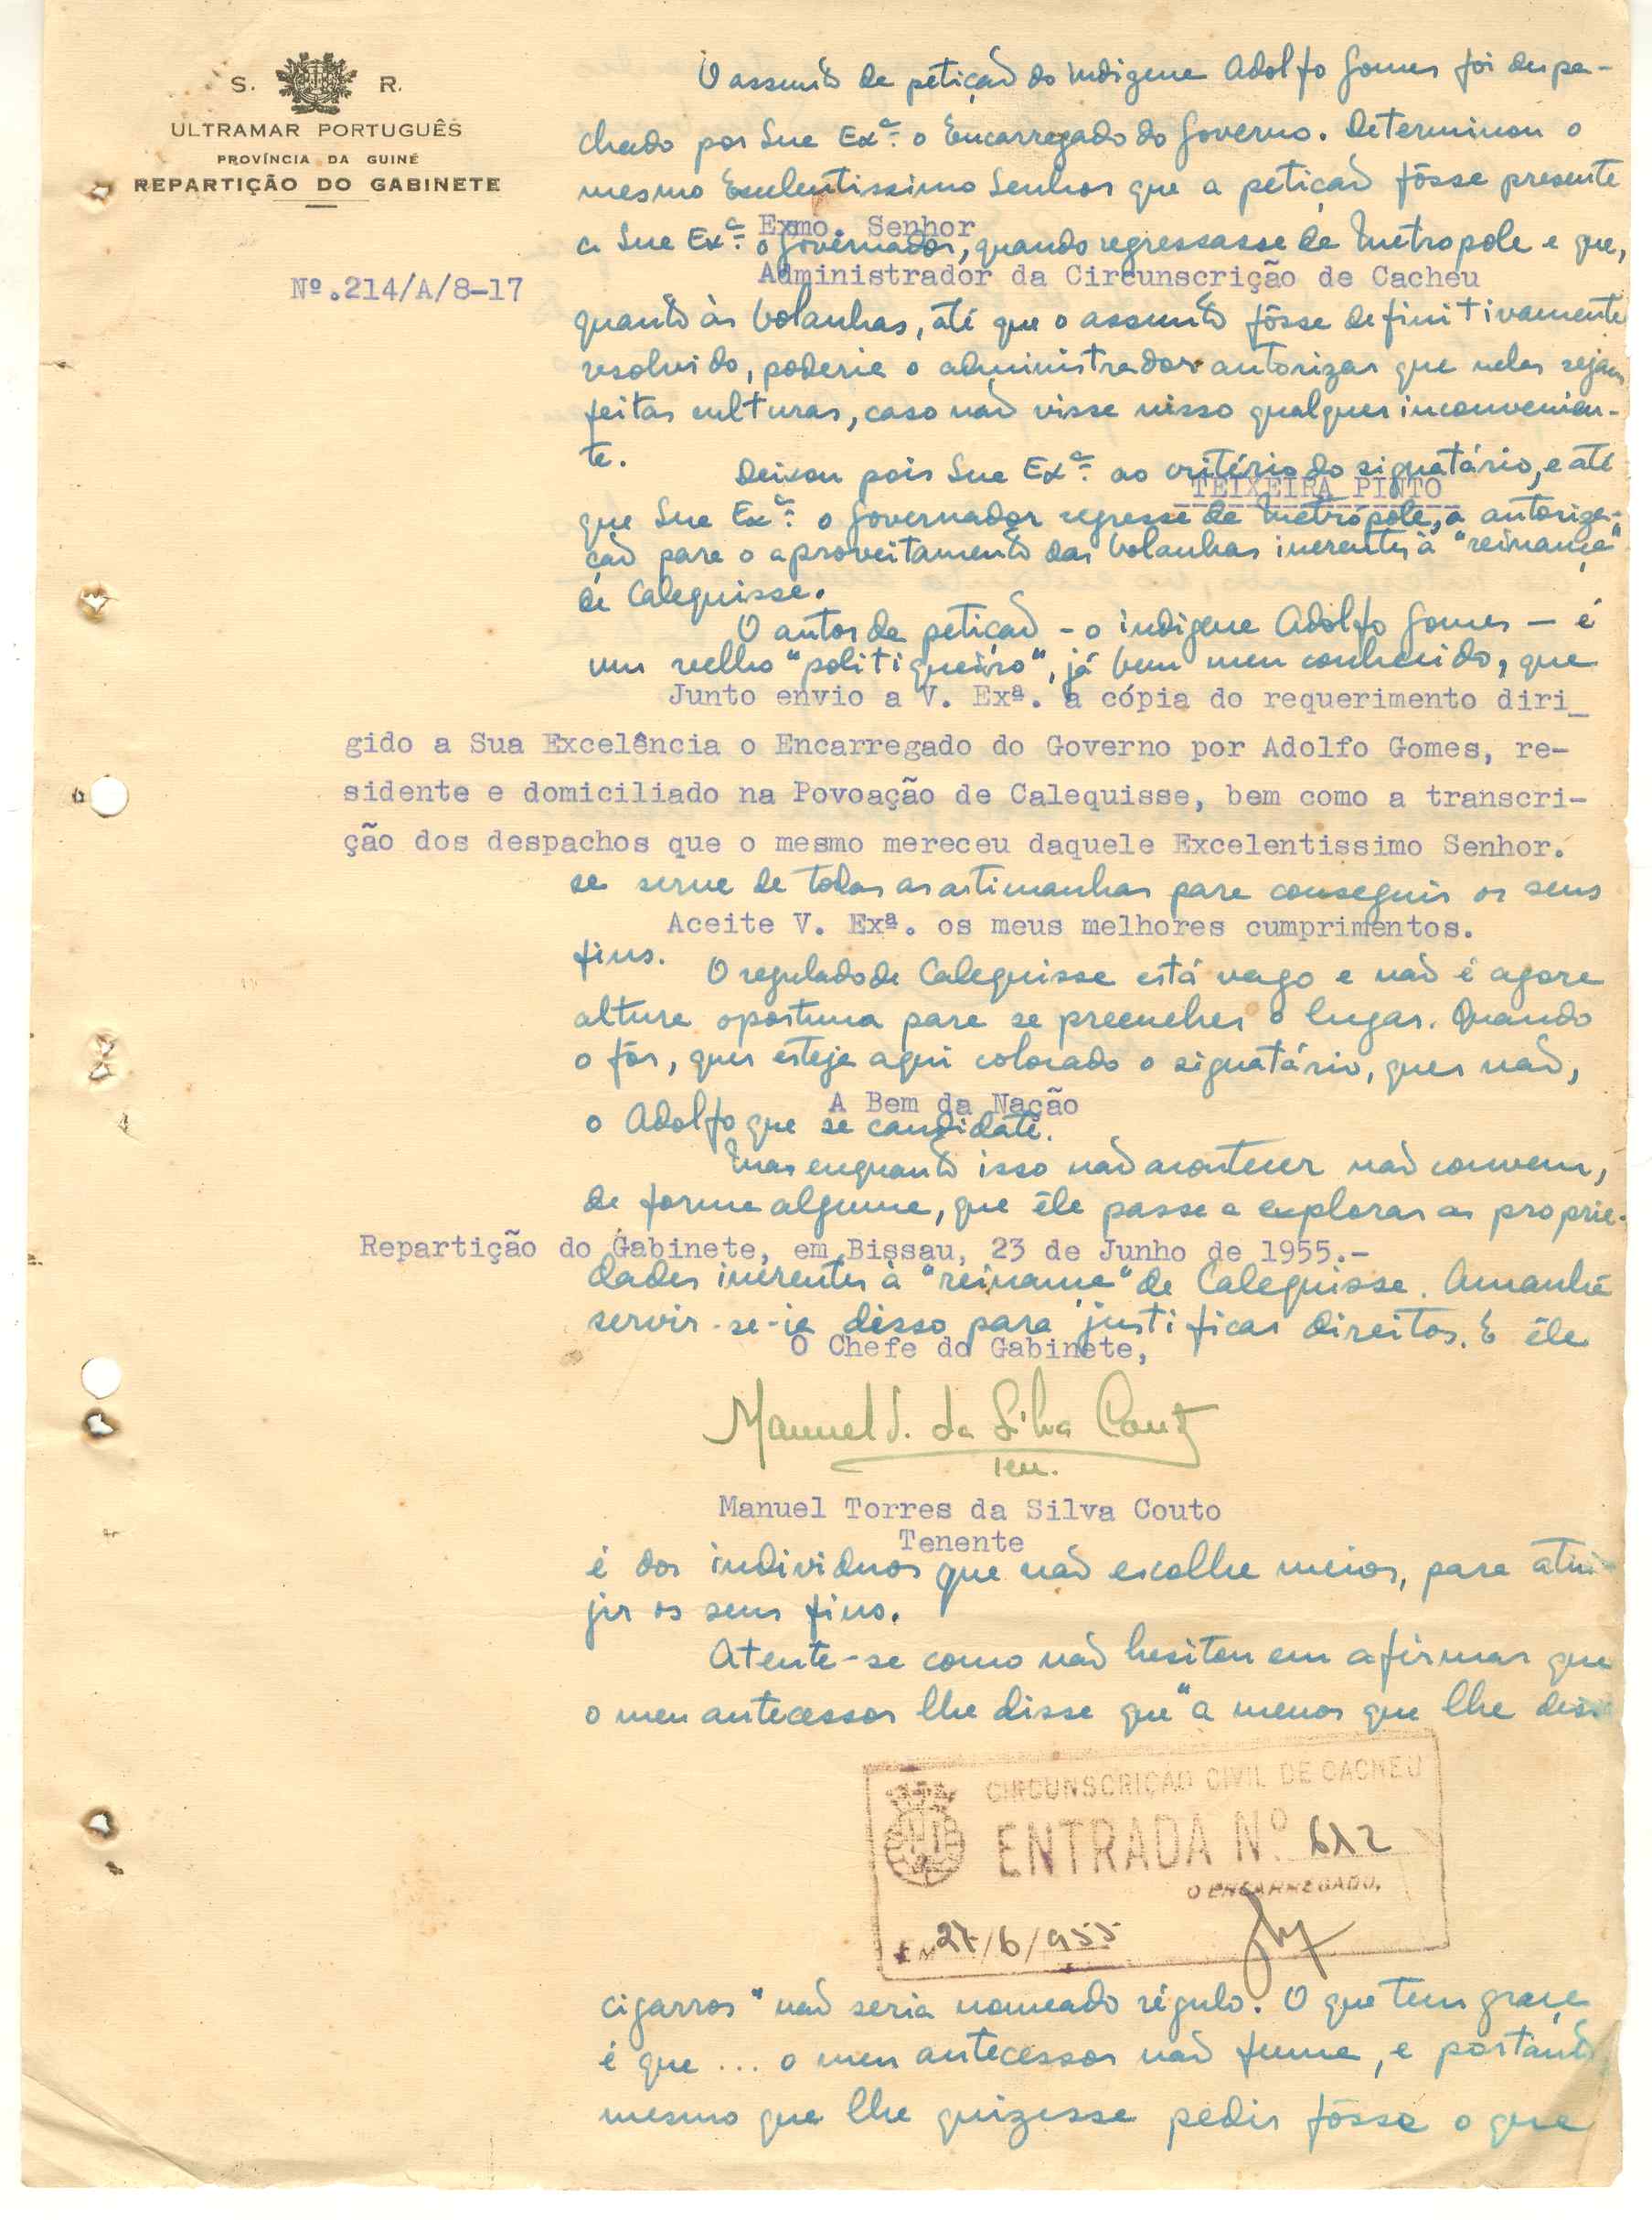 S. R.
ULTRAMAR PORTUGUÊS
PROVÍNCIA DA GUINÉ
REPARTIÇÃO DO GABINETE
O assunto da petição do indígena Adolfo Gomes foi despa-
chado por Sua Exª. o Encarregado do Governo. Determinou o
mesmo Exelentissimo Senhor que a petição fôsse presente
Exmo. Senhor
a Sua Exª. o Governador, quando regressasse da Metropole e que,
Administrador da Circunscrição de Cacheu
Nº.214/A/8-17
quanto às bolanhas, até que o assunto fôsse definitivamente
resolvido, poderia o administrador autorizar que nelas sejam
feitas culturas, caso não visse nisso qualquer inconvenien-
te.
Deixou pois Sua Exª. ao critério do signatário, e até
TEIXEIRA PINTO
que Sua Exª. o Governador regresse da Metrópole, a autoriza-
ção para o aproveitamento das bolanhas inerentes à "reinança"
de Calequisse.
O autor da petição - o indígena Adolfo Gomes - é
um velho "politiqueiro", já bem meu conhecido, que
Junto envio a V. Exª. a cópia do requerimento diri_
gido a Sua Excelência o Encarregado do Governo por Adolfo Gomes, re-
sidente e domiciliado na Povoação de Calequisse, bem como a transcri-
ção dos despachos que o mesmo mereceu daquele Excelentissimo Senhor.
se serve de todas as artimanhas para conseguir os seus
Aceite V. Exª. os meus melhores cumprimentos.
fins.
O regulado de Calequisse está vago e não é agora
altura oportuna para se preencher o lugar. Quando
o fôr, quer esteja aqui colocado o signatário, quer não,
A Bem da Nação
o Adolfo que se candidate.
Mas enquanto isso não acontecer não convem,
de forma alguma, que êle passe a explorar as proprie-
Repartição do Gabinete, em Bissau, 23 de Junho de 1955.-
dades inerentes à "reinança" de Calequisse. Amanhã
servir-se-ia disso para justificar direitos. E êle
O Chefe do Gabinete,
Manuel T. da Silva Couto
Ten.
Manuel Torres da Silva Couto
Tenente
é dos individuos que não escolhe meios, para atin-
jir os seus fins.
Atente-se como não hesitou em afirmar que
o meu antecessor lhe disse que "a menos que lhe desse
CIRCUNSCRIÇÃO CIVIL DE CACHEU
ENTRADA Nº 612
O ENCARREGADO,
EM 27/6/955
cigarros" não seria nomeado régulo. O que tem graça
é que ... o meu antecessor não fuma, e portanto
mesmo que lhe quizesse pedir fôsse o que